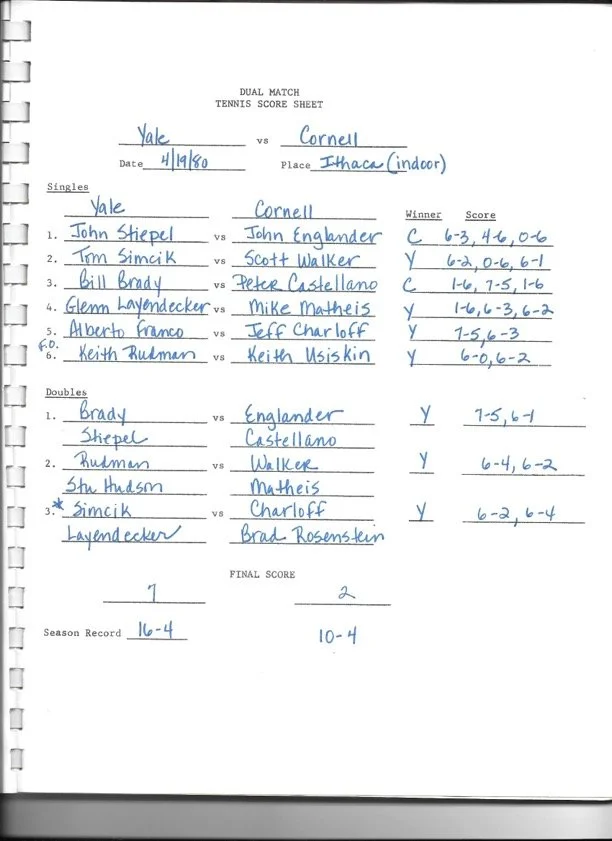 DUAL MATCH
TENNIS SCORE SHEET
Yale vs Cornell
Date 4/19/80 Place Ithaca (indoor)
Singles
Yale Cornell Winner Score
1. John Stiepel vs John Englander C 6-3, 4-6, 0-6
2. Tom Simcik vs Scott Walker Y 6-2, 0-6, 6-1
3. Bill Brady vs Peter Castellano C 1-6, 7-5, 1-6
4. Glenn Layendecker vs Mike Matheis Y 1-6, 6-3, 6-2
5. Alberto Franco vs Jeff Charloff Y 7-5, 6-3
F.O.
6. Keith Rudman vs Keith Usiskin Y 6-0, 6-2
Doubles
1. Brady vs Englander Y 7-5, 6-1
Stiepel Castellano
2. Rudman vs Walker Y 6-4, 6-2
Stu Hudson Matheis
3.* Simcik vs Charloff Y 6-2, 6-4
Layendecker Brad Rosenstein
FINAL SCORE
7 2
Season Record 16-4 10-4